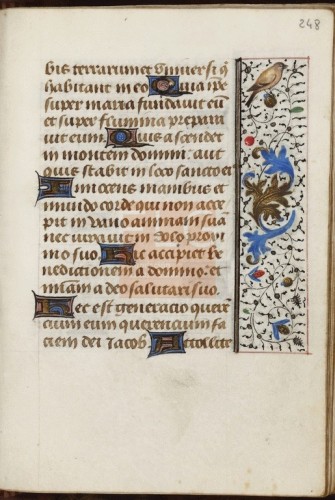 248
bis terrarum et universi q̄
habitant in eo Quia ip̄e
super maria fundavit eū
et super flumina prepara
vit eum. Quis ascendet
in montem domini: aut
quis stabit in loco sancto ei⁹
Innocens manibus et
mundo corde qui non acce
pit in vano animam suā
nec iuravit in dolo proxi
mo suo. Hic accipiet be
nedictionem a domino: et
mīam a deo salutari suo.
Hec est generacio queren
cium eum querencium fa
ciem dei Jacob. Attollite